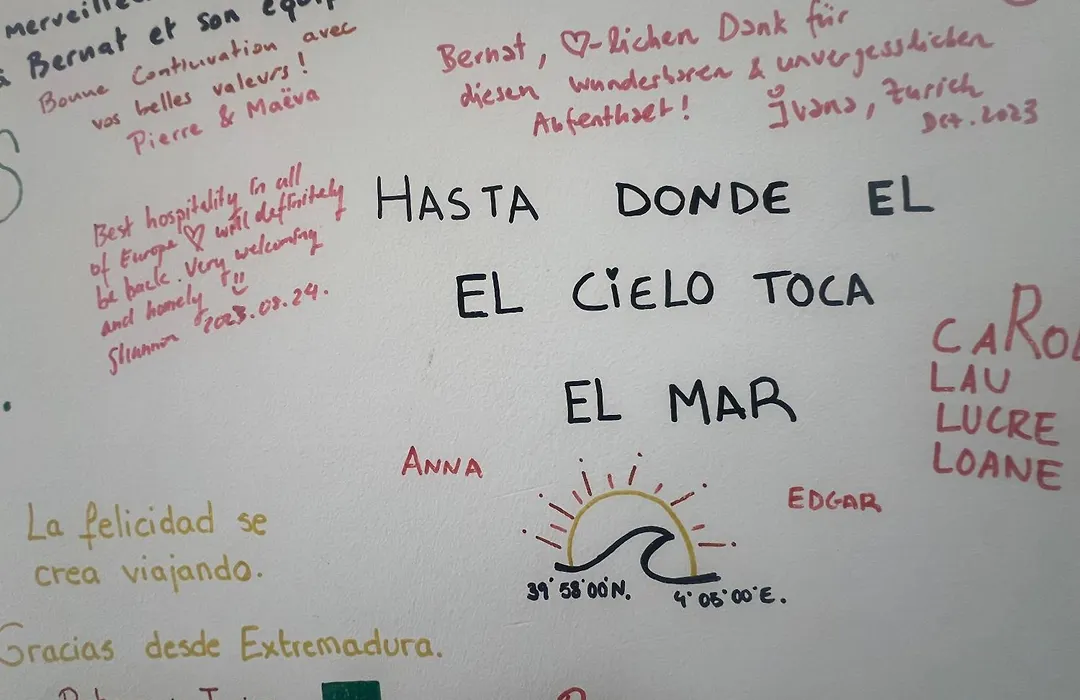 merveille
à Bernat et son équip
Bonne Continuation avec
vos belles valeurs!
Pierre & Maëva
Bernat, ♡-lichen Dank für
diesen wunderbaren & unvergesslichen
Aufenthalt!
Ivana, Zurich
Oct. 2023
Best hospitality in all
of Europe ♡ will definitely
be back. Very welcoming
and homely !!
Shannon 2023.08.24.
HASTA DONDE EL
EL CiELO TOCA
EL MAR
CAROL
LAU
LUCRE
LOANE
ANNA
EDGAR
39°58'00"N. 4°05'00"E.
La felicidad se
crea viajando.
Gracias desde Extremadura.